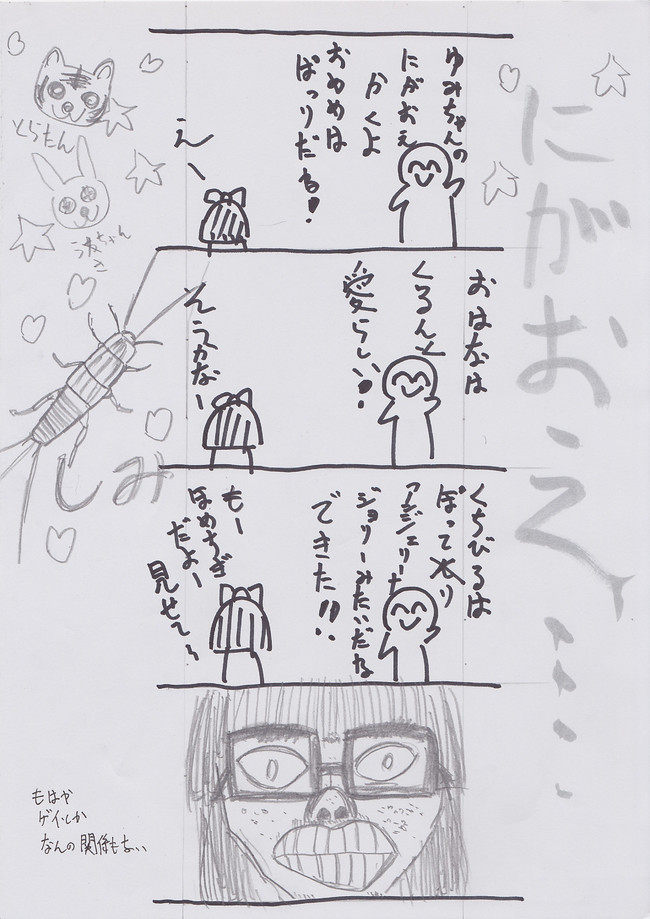 にがおえ....
ゆみちゃんの
にがおえ
かくよ
おめめは
ぱっりだね!
え〜
おはなは
くるんと
愛らしい!
そうかなー
くちびるは
ぽって太り
アンジェリーナ
ジョリーみたいだね
できた!!
もー
ほめすぎ
だよー
見せて〜
とらもん
うさちゃん
しみ
もはや
ゲイしか
なんの関係もない